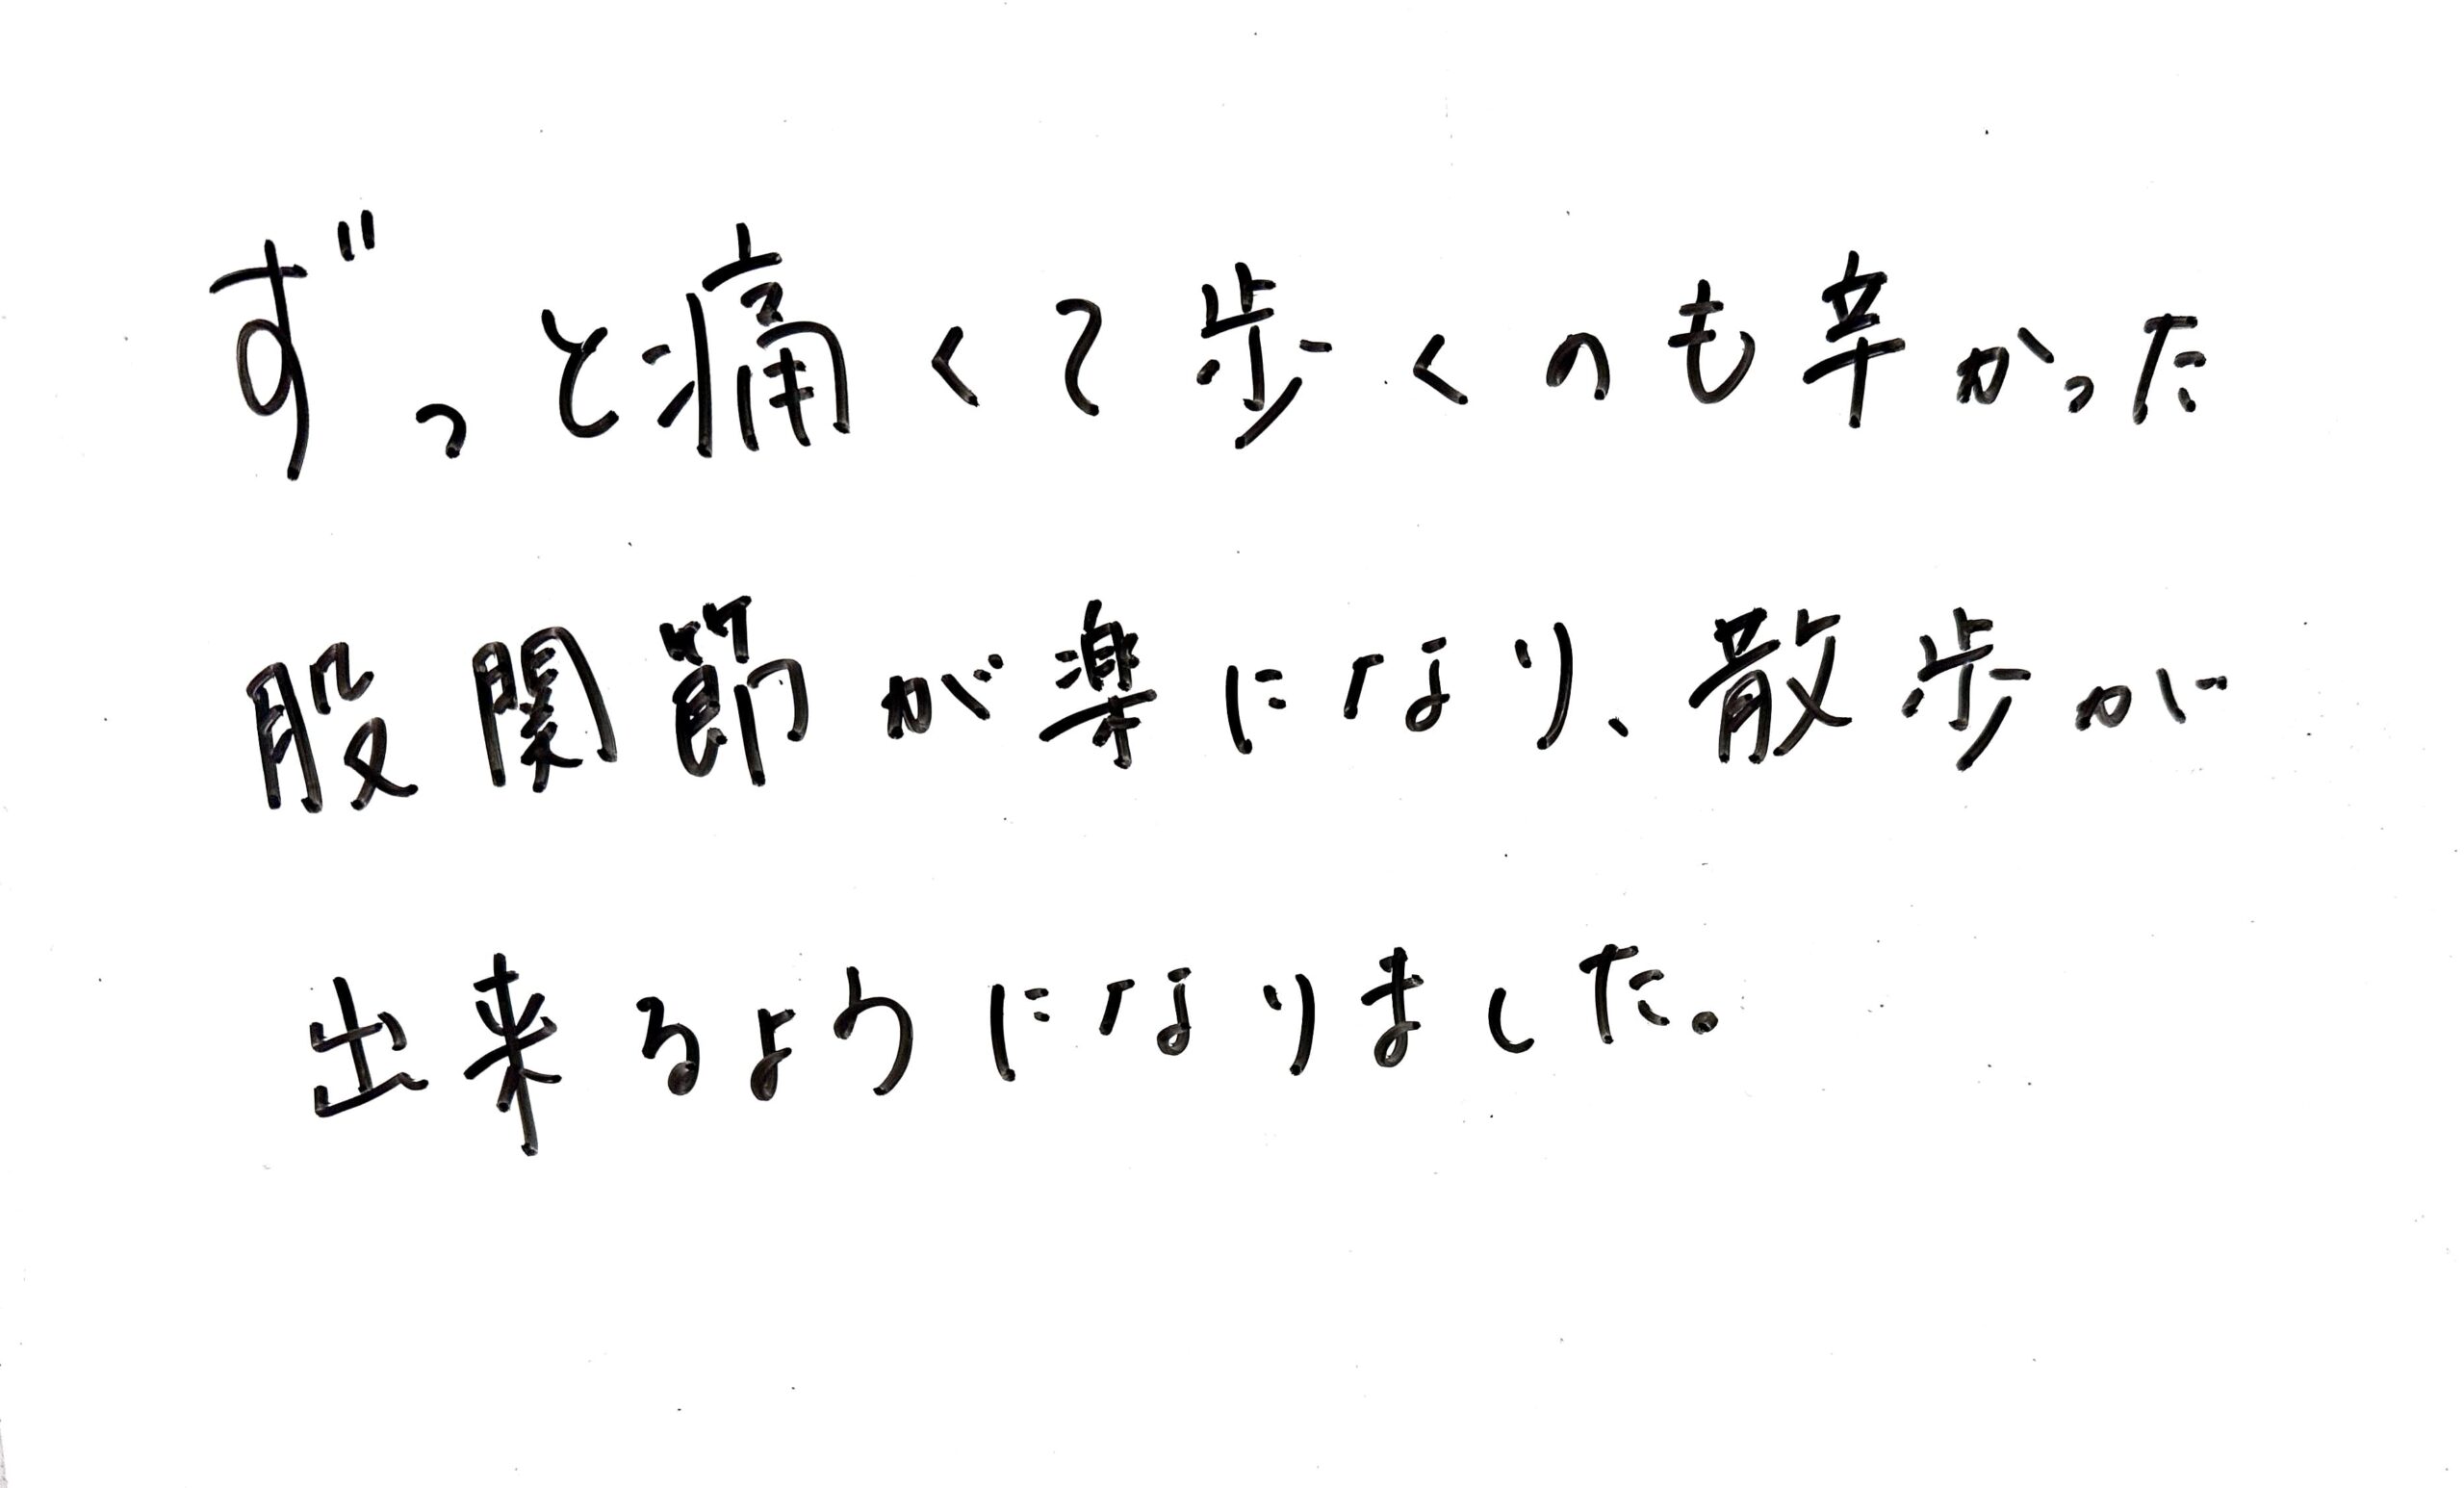 ずっと痛くて歩くのも辛かった
股関節が楽になり、散歩が
出来るようになりました。